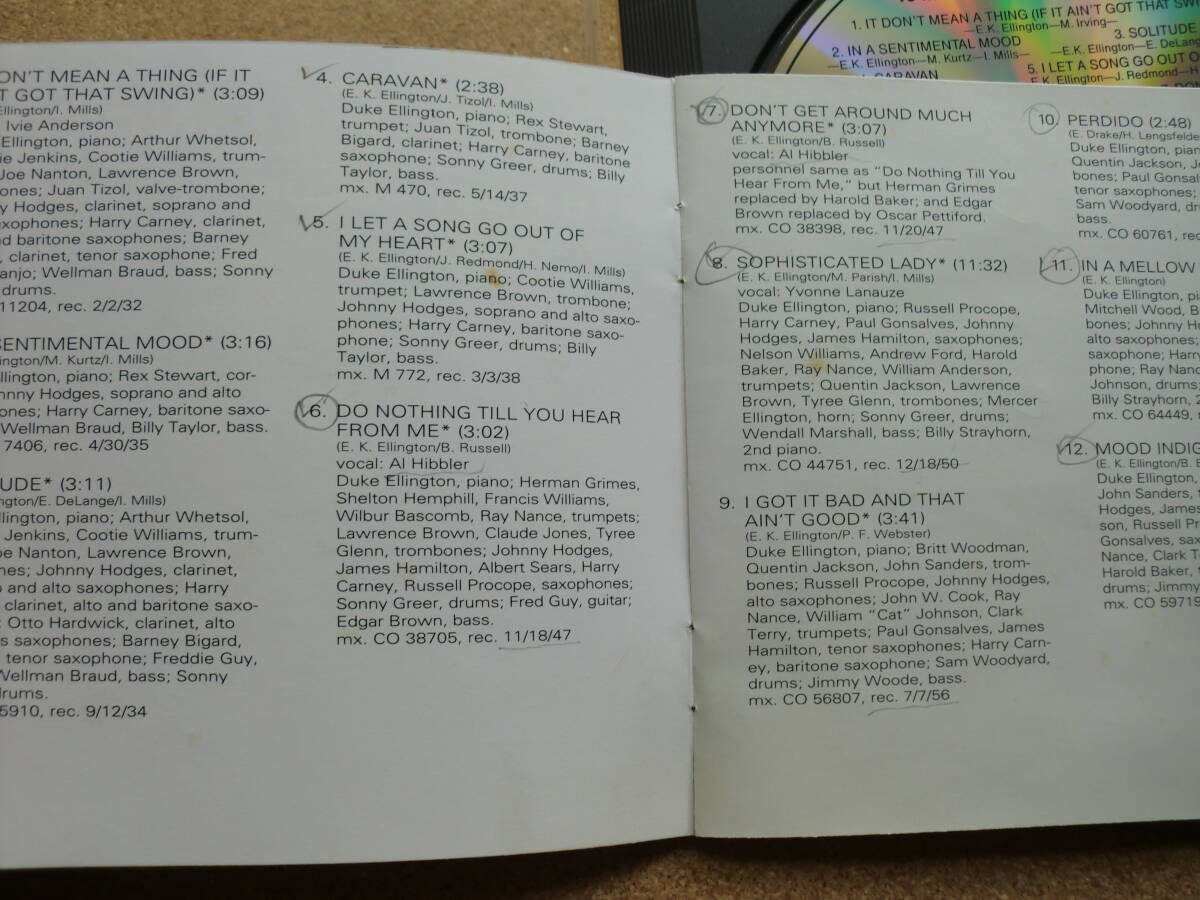 ON'T MEAN A THING (IF IT
T GOT THAT SWING)* (3:09)
Ellington/I. Mills)
Ivie Anderson
Ellington, piano; Arthur Whetsol,
ie Jenkins, Cootie Williams, trum-
Joe Nanton, Lawrence Brown,
ones; Juan Tizol, valve-trombone;
y Hodges, clarinet, soprano and
axophones; Harry Carney, clarinet,
d baritone saxophones; Barney
, clarinet, tenor saxophone; Fred
anjo; Wellman Braud, bass; Sonny
drums.
11204, rec. 2/2/32
SENTIMENTAL MOOD* (3:16)
ington/M. Kurtz/I. Mills)
llington, piano; Rex Stewart, cor-
hnny Hodges, soprano and alto
ones; Harry Carney, baritone saxo-
Wellman Braud, Billy Taylor, bass.
7406, rec. 4/30/35
UDE* (3:11)
ngton/E. DeLange/I. Mills)
llington, piano; Arthur Whetsol,
Jenkins, Cootie Williams, trum-
oe Nanton, Lawrence Brown,
nes; Johnny Hodges, clarinet,
o and alto saxophones; Harry
clarinet, alto and baritone saxo-
; Otto Hardwick, clarinet, alto
s saxophones; Barney Bigard,
tenor saxophone; Freddie Guy,
Wellman Braud, bass; Sonny
drums.
5910, rec. 9/12/34
4. CARAVAN* (2:38)
(E. K. Ellington/J. Tizol/I. Mills)
Duke Ellington, piano; Rex Stewart,
trumpet; Juan Tizol, trombone; Barney
Bigard, clarinet; Harry Carney, baritone
saxophone; Sonny Greer, drums; Billy
Taylor, bass.
mx. M 470, rec. 5/14/37
5. I LET A SONG GO OUT OF
MY HEART* (3:07)
(E. K. Ellington/J. Redmond/H. Nemo/I. Mills)
Duke Ellington, piano; Cootie Williams,
trumpet; Lawrence Brown, trombone;
Johnny Hodges, soprano and alto saxo-
phones; Harry Carney, baritone saxo-
phone; Sonny Greer, drums; Billy
Taylor, bass.
mx. M 772, rec. 3/3/38
6. DO NOTHING TILL YOU HEAR
FROM ME* (3:02)
(E. K. Ellington/B. Russell)
vocal: Al Hibbler
Duke Ellington, piano; Herman Grimes,
Shelton Hemphill, Francis Williams,
Wilbur Bascomb, Ray Nance, trumpets;
Lawrence Brown, Claude Jones, Tyree
Glenn, trombones; Johnny Hodges,
James Hamilton, Albert Sears, Harry
Carney, Russell Procope, saxophones;
Sonny Greer, drums; Fred Guy, guitar;
Edgar Brown, bass.
mx. CO 38705, rec. 11/18/47
7. DON'T GET AROUND MUCH
ANYMORE* (3:07)
(E. K. Ellington/B. Russell)
vocal: Al Hibbler
personnel same as "Do Nothing Till You
Hear From Me," but Herman Grimes
replaced by Harold Baker; and Edgar
Brown replaced by Oscar Pettiford.
mx. CO 38398, rec. 11/20/47
8. SOPHISTICATED LADY* (11:32)
(E. K. Ellington/M. Parish/I. Mills)
vocal: Yvonne Lanauze
Duke Ellington, piano; Russell Procope,
Harry Carney, Paul Gonsalves, Johnny
Hodges, James Hamilton, saxophones;
Nelson Williams, Andrew Ford, Harold
Baker, Ray Nance, William Anderson,
trumpets; Quentin Jackson, Lawrence
Brown, Tyree Glenn, trombones; Mercer
Ellington, horn; Sonny Greer, drums;
Wendall Marshall, bass; Billy Strayhorn,
2nd piano.
mx. CO 44751, rec. 12/18/50
9. I GOT IT BAD AND THAT
AIN'T GOOD* (3:41)
(E. K. Ellington/P. F. Webster)
Duke Ellington, piano; Britt Woodman,
Quentin Jackson, John Sanders, trom-
bones; Russell Procope, Johnny Hodges,
alto saxophones; John W. Cook, Ray
Nance, William "Cat" Johnson, Clark
Terry, trumpets; Paul Gonsalves, James
Hamilton, tenor saxophones; Harry Carn-
ey, baritone saxophone; Sam Woodyard,
drums; Jimmy Woode, bass.
mx. CO 56807, rec. 7/7/56
10. PERDIDO (2:48)
(E. Drake/H. Lengsfelde
Duke Ellington, pian
Quentin Jackson, Jo
bones; Paul Gonsal
tenor saxophones;
Sam Woodyard, dr
bass.
mx. CO 60761, rec
11. IN A MELLOW
(E. K. Ellington)
Duke Ellington, pi
Mitchell Wood, B
bones; Johnny H
alto saxophones;
saxophone; Harr
phone; Ray Nanc
Johnson, drums;
Billy Strayhorn, 2
mx. CO 64449, r
12. MOOD INDIG
(E. K. Ellington/B. B
Duke Ellington,
John Sanders,
Hodges, James
son, Russell Pr
Gonsalves, sax
Nance, Clark T
Harold Baker, t
drums; Jimmy
mx. CO 59719
1. IT DON'T MEAN A THING (IF IT AIN'T GOT THAT SWIN
—E.K. Ellington—M. Irving—
2. IN A SENTIMENTAL MOOD
—E.K. Ellington—M. Kurtz—I. Mills—
3. SOLITUDE
—E.K. Ellington—E. DeLange
CARAVAN
5. I LET A SONG GO OUT O
E.K. Ellington—J. Redmond—H